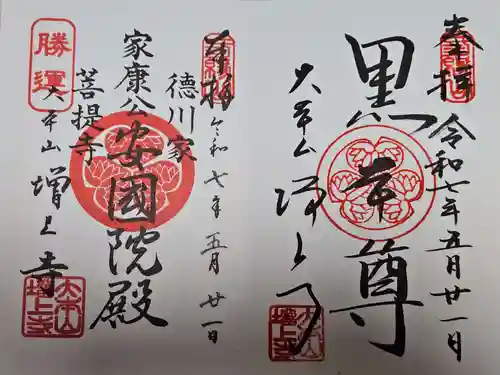 奉拝
令和七年五月廿一日
德川家
家康公
安國院殿
菩提寺
勝運
大本山
増上寺
奉拝
令和七年五月廿一日
黒本尊
大本山
増上寺